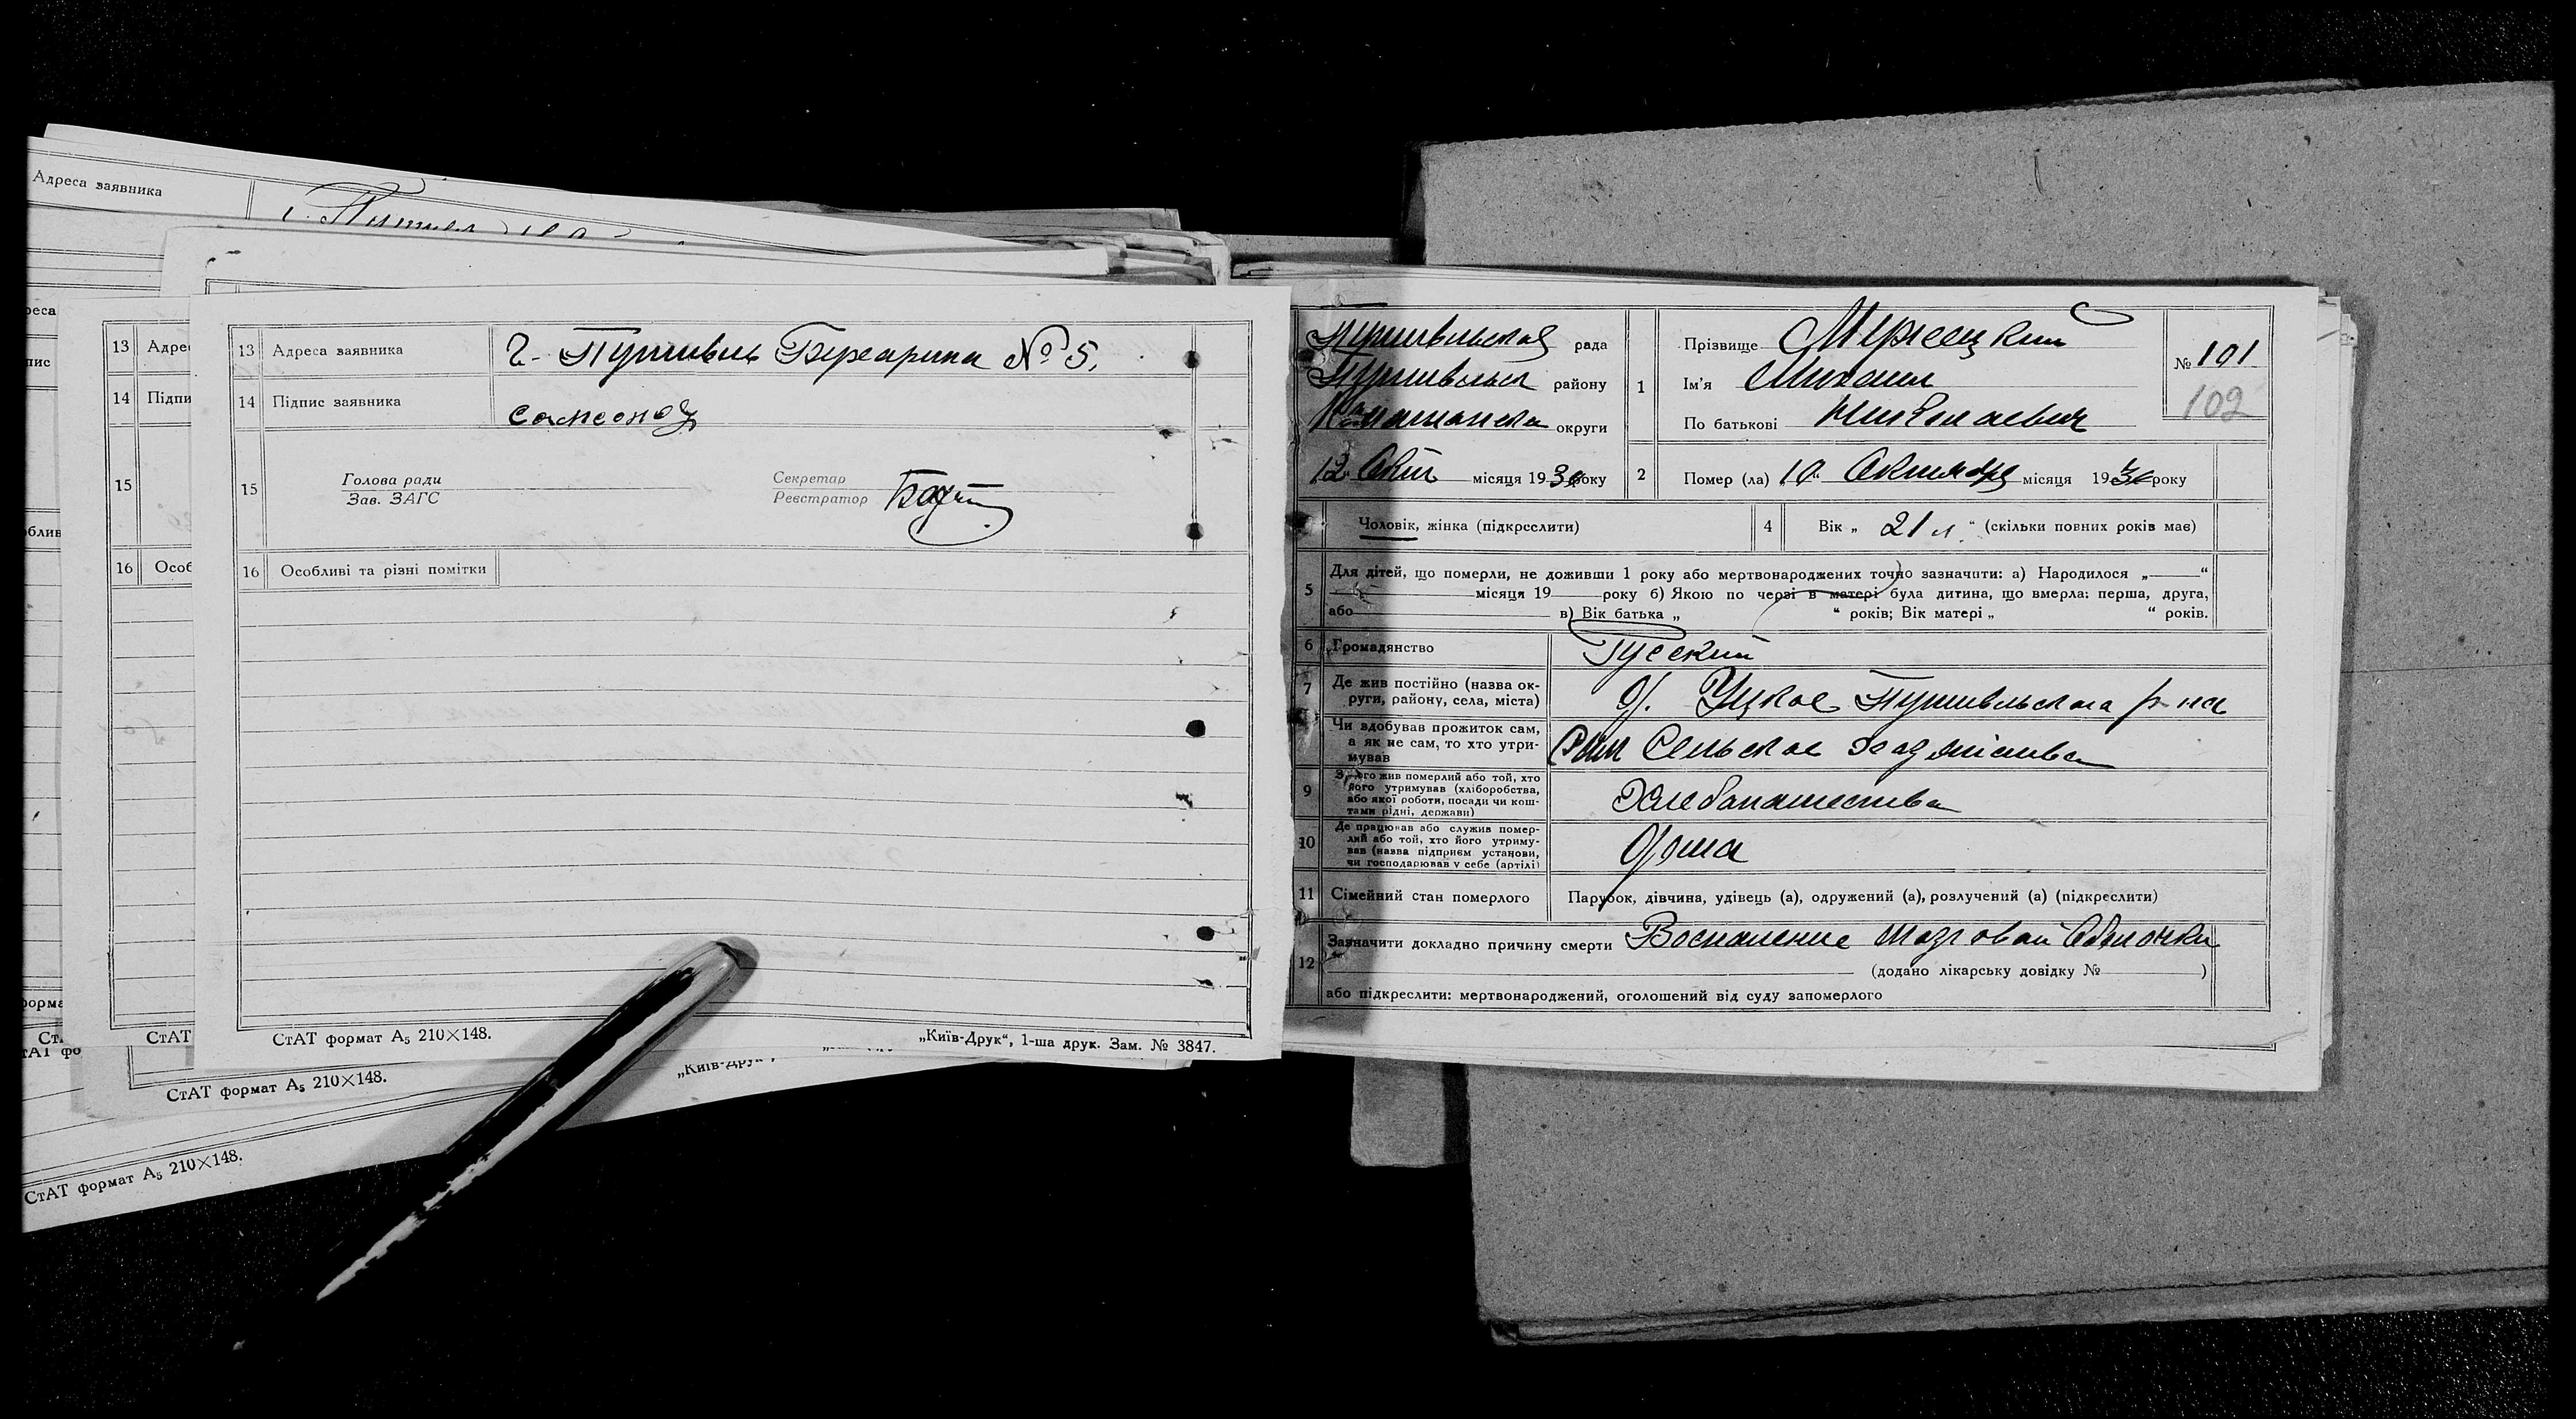 Адреса заявника
13 Адреса заявника г. Путивль Бухарина № 5.
14 Підпис заявника
15 Голова ради
Зав. ЗАГС
Секретар
Реєстратор
16 Особливі та різні помітки
СтАТ формат А5 210×148.
„Київ-Друк“, 1-ша друк. Зам. № 3847.
13 Адре
14 Підпи
15
16 Особ
СтАТ
СтАТ формат А5 210×148.
СтАТ формат А5 210×148.
Путивльская рада
Путивльск району
округи
12 Окт місяця 1930 року
1 Прізвище
Ім'я Михаил
По батькові Николаевич
№ 101
102
2 Помер (ла) „10“ Октября місяця 1930 року
Чоловік, жінка (підкреслити)
4 Вік „ 21 л. “ (скільки повних років має)
5 Для дітей, що померли, не доживши 1 року або мертвонароджених точно зазначити: а) Народилося „ “
місяця 19 року б) Якою по черзі в матері була дитина, що вмерла: перша, друга,
або в) Вік батька „ “ років; Вік матері „ “ років.
6 Громадянство Русский
7 Де жив постійно (назва ок-
руги, району, села, міста) Путивльского р-на
Чи здобував прожиток сам,
а як не сам, то хто утри-
мував Сам Сельское хозяйство
9 З чого жив померлий або той, хто
його утримував (хліборобства,
або якої роботи, посади чи кош-
тами рідні, держави) Хлебопашество
10 Де працював або служив помер-
лий або той, хто його утриму-
вав (назва підприєм установи,
чи господарював у себе (артілі)
11 Сімейний стан померлого Парубок, дівчина, удівець (а), одружений (а), розлучений (а) (підкреслити)
12 Зазначити докладно причину смерти Воспаление мозговой оболочки
(додано лікарську довідку № )
або підкреслити: мертвонароджений, оголошений від суду запомерлого